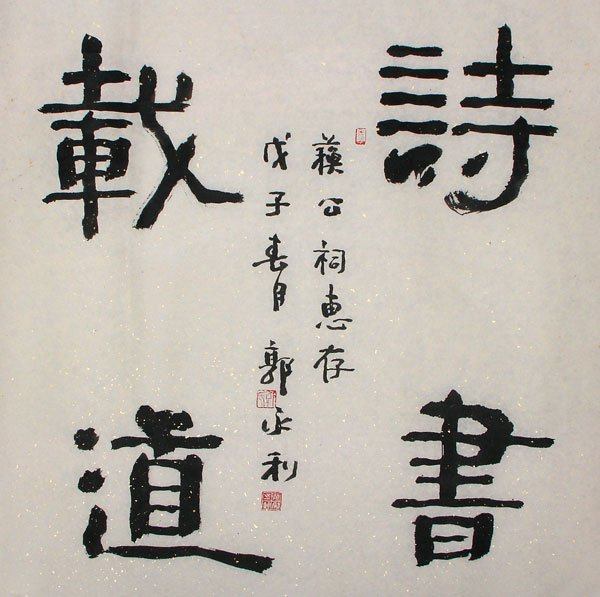 詩書
載道
蘓公祠惠存
戊子春月 郭永利